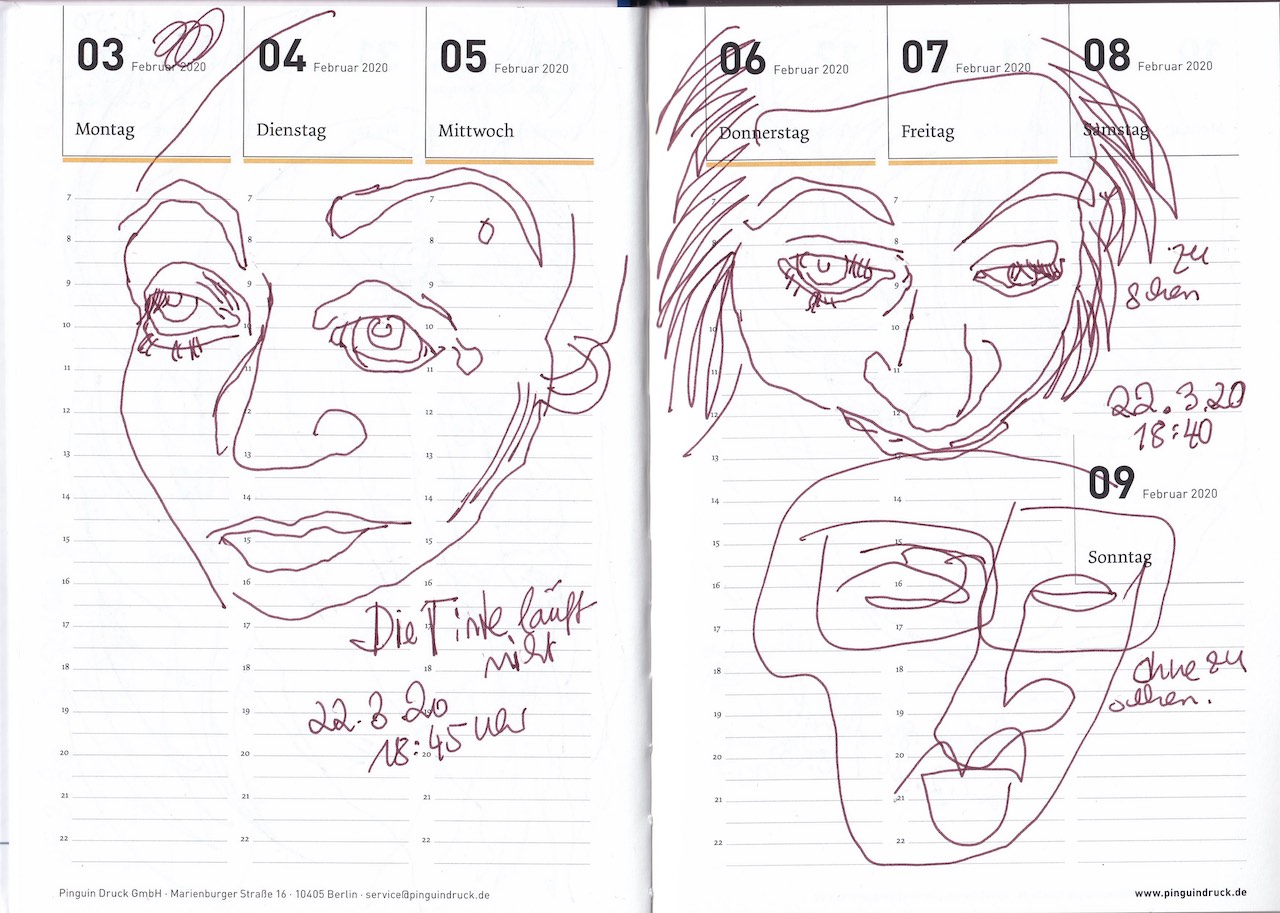 03 Februar 2020
Montag
04 Februar 2020
Dienstag
05 Februar 2020
Mittwoch
7 7 7
8 8 8
9 9 9
10 10 10
11 11 11
12 12 12
13 13
14 14 14
15 15 15
16 16 16
17 17 17
18 18 18
19 19 19
20 20 20
21 21 21
22 22 22
Die Tinte läuft
nicht
22.3.20
18:45 Uhr
Pinguin Druck GmbH · Marienburger Straße 16 · 10405 Berlin · service@pinguindruck.de
06 Februar 2020
Donnerstag
07 Februar 2020
Freitag
08 Februar 2020
Samstag
7 7
8 8
9 9
10 10
11 11
12 12
13 13
14 14
15 15
16 16
17 17
18 18
19 19
20 20
21 21
22 22
zu
sehen
22.3.20
18:40
09 Februar 2020
Sonntag
ohne zu
sehen.
www.pinguindruck.de